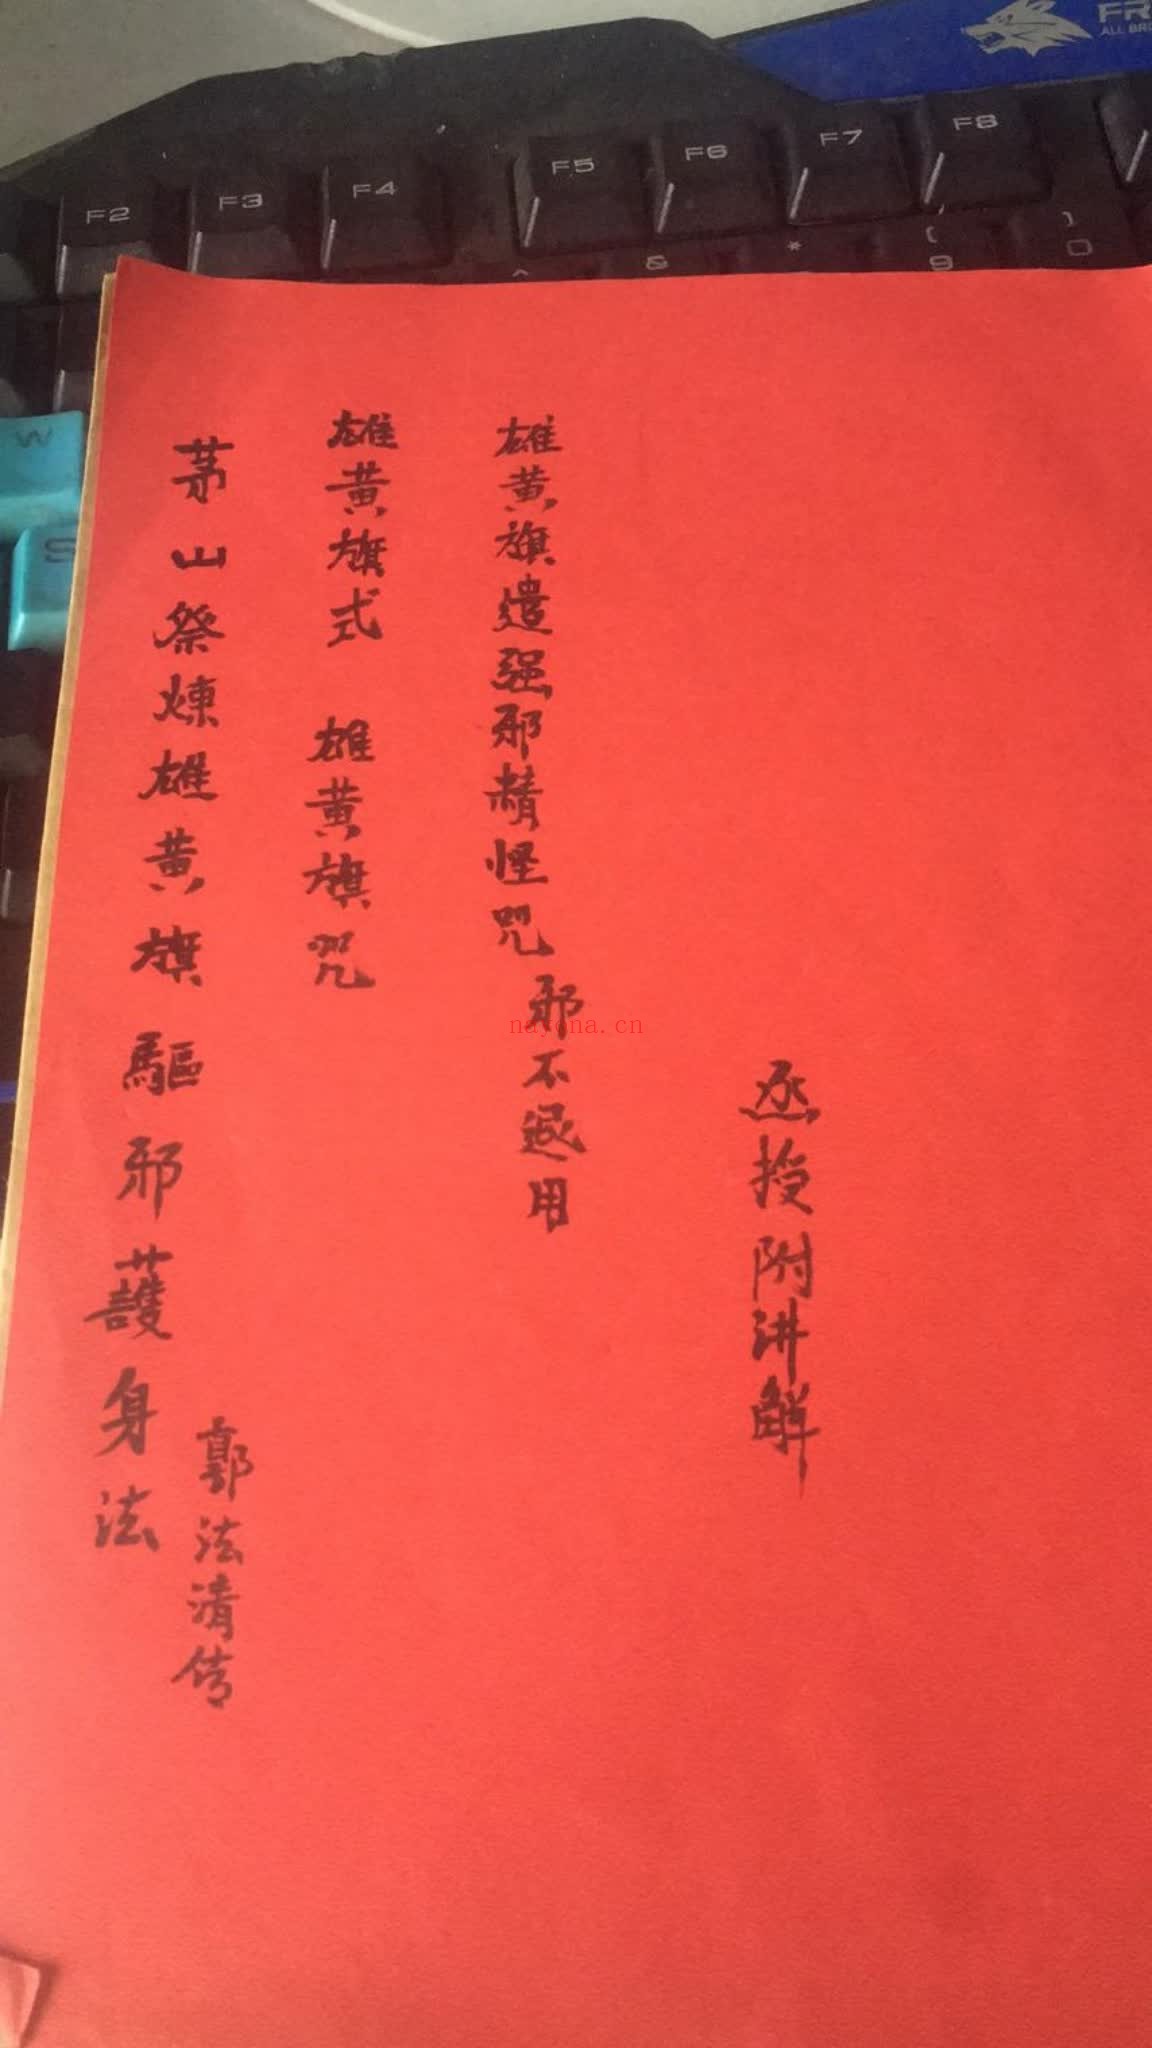 FR
ALL BRO
F2
F3
F4
F5
F6
F7
F8
^
&
*
(
9
)
0
W
S
茅山祭煉雄黄旗驅邪護身法
郭法清传
雄黄旗式 雄黄旗咒
雄黄旗遣强邪精怪咒
邪不退用
nayona.cn
授附讲解